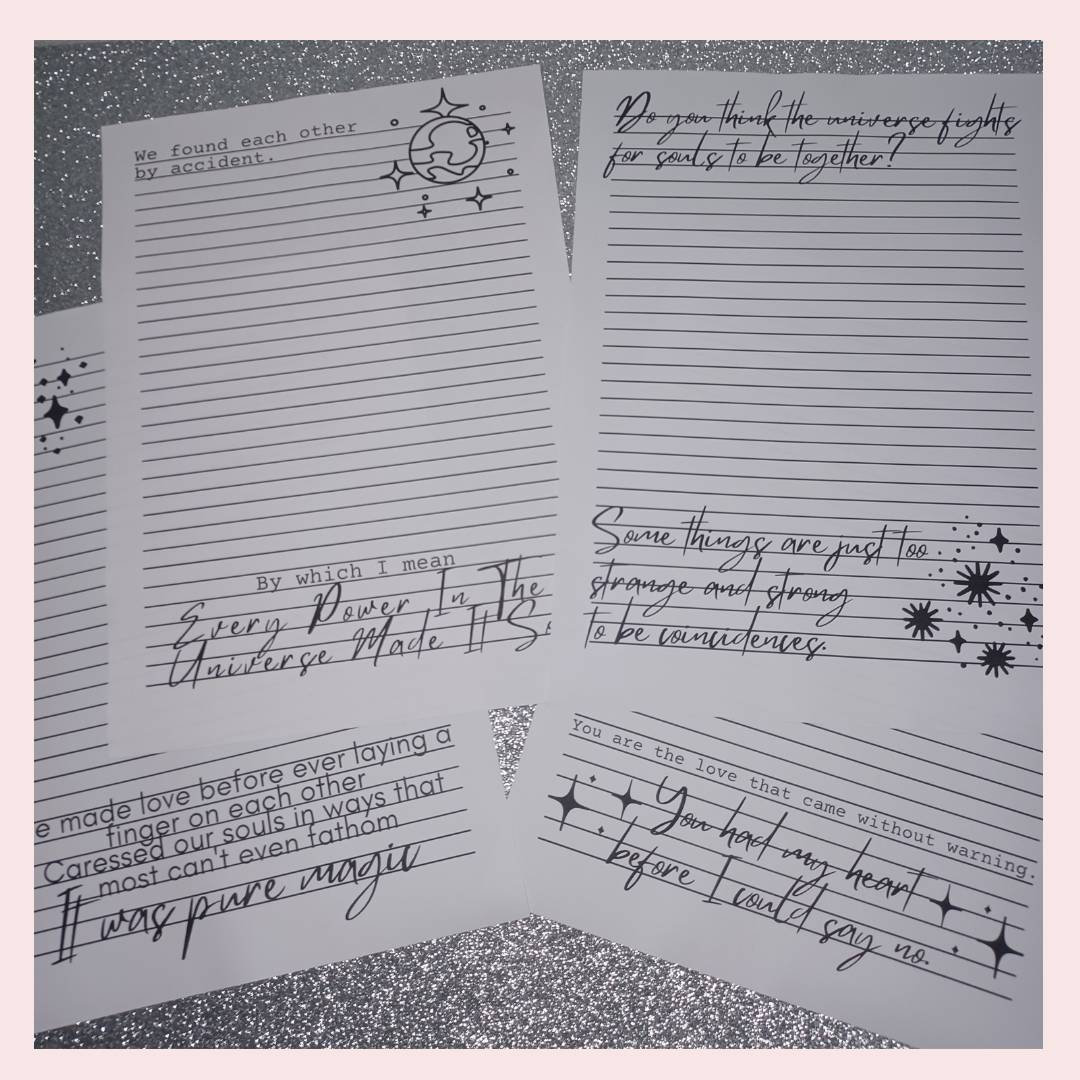 We found each other
by accident.
By which I mean
Every Power In The
Universe Made It So
Do you think the universe fights
for souls to be together?
Some things are just too
strange and strong
to be coincidences.
e made love before ever laying a
finger on each other
Caressed our souls in ways that
most can't even fathom
It was pure magic
You are the love that came without warning.
You had my heart
before I could say no.